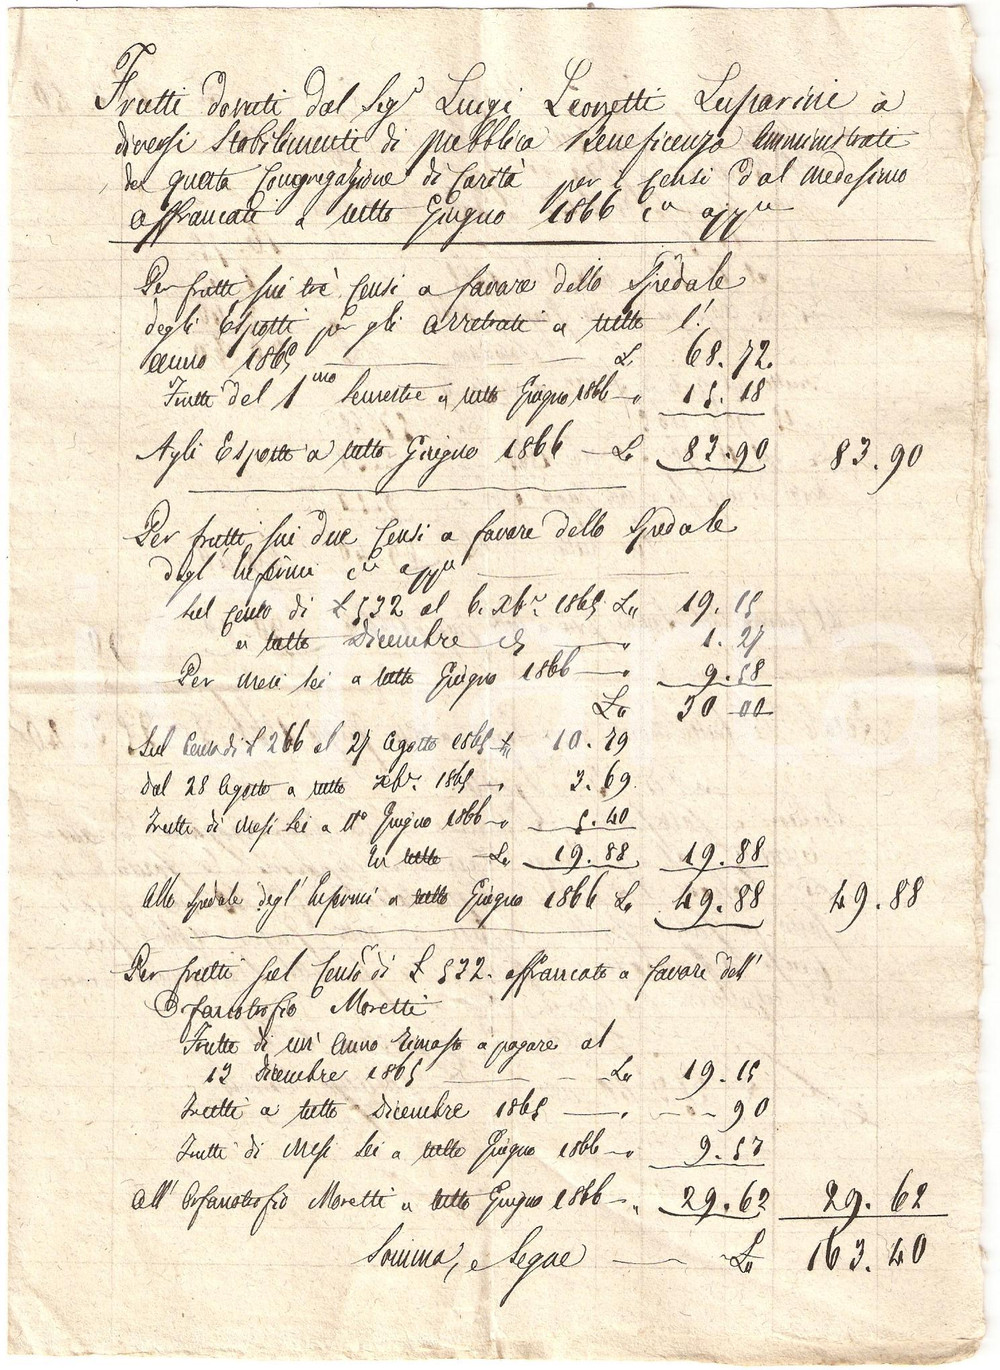 Frutti dovuti dal Sigr Luigi Leonetti Luparini a
diversi Stabilimenti di pubblica Beneficenza Amministrati
da questa Congregazione di Carità per i Censi dal medesimo
affrancati a tutto Giugno 1866 cie appie
Per frutti sui trè Censi a favore dello Spedale
degli Esposti per gli arretrati a tutto l'
anno 1865 L 68.72
Frutti del 1mo Semestre a tutto Giugno 1866 15.18
Agli Esposti a tutto Giugno 1866 La 83.90 83.90
Per frutti sui due Censi a favore dello Spedale
degl' Infermi cie appie
Sul Censo di £ 532 al 6. Xbre 1865 La 19.15
a tutto Dicembre 1.27
Per mesi sei a tutto Giugno 1866 9.58
La 30 00
Sul Censo di £ 266 al 27 Agosto 1865 10.79
dal 28 Agosto a tutto Xbre 1865 3.69
Frutti di Mesi Sei a tto Giugno 1866 5.40
In tutto La 19.88 19.88
Allo Spedale degl' Infermi a tutto Giugno 1866 La 49.88 49.88
Per frutti sul Censo di £ 532. affrancato a favore dell'
Orfanotrofio Moretti
Frutti di un' Anno rimasto a pagare al
13 Dicembre 1865 La 19.15
Frutti a tutto Dicembre 1865 90
Frutti di Mesi Sei a tutto Giugno 1866 9.57
All' Orfanotrofio Moretti a tutto Giugno 1866 29.62 29.62
Somma, e Segue La 163.40